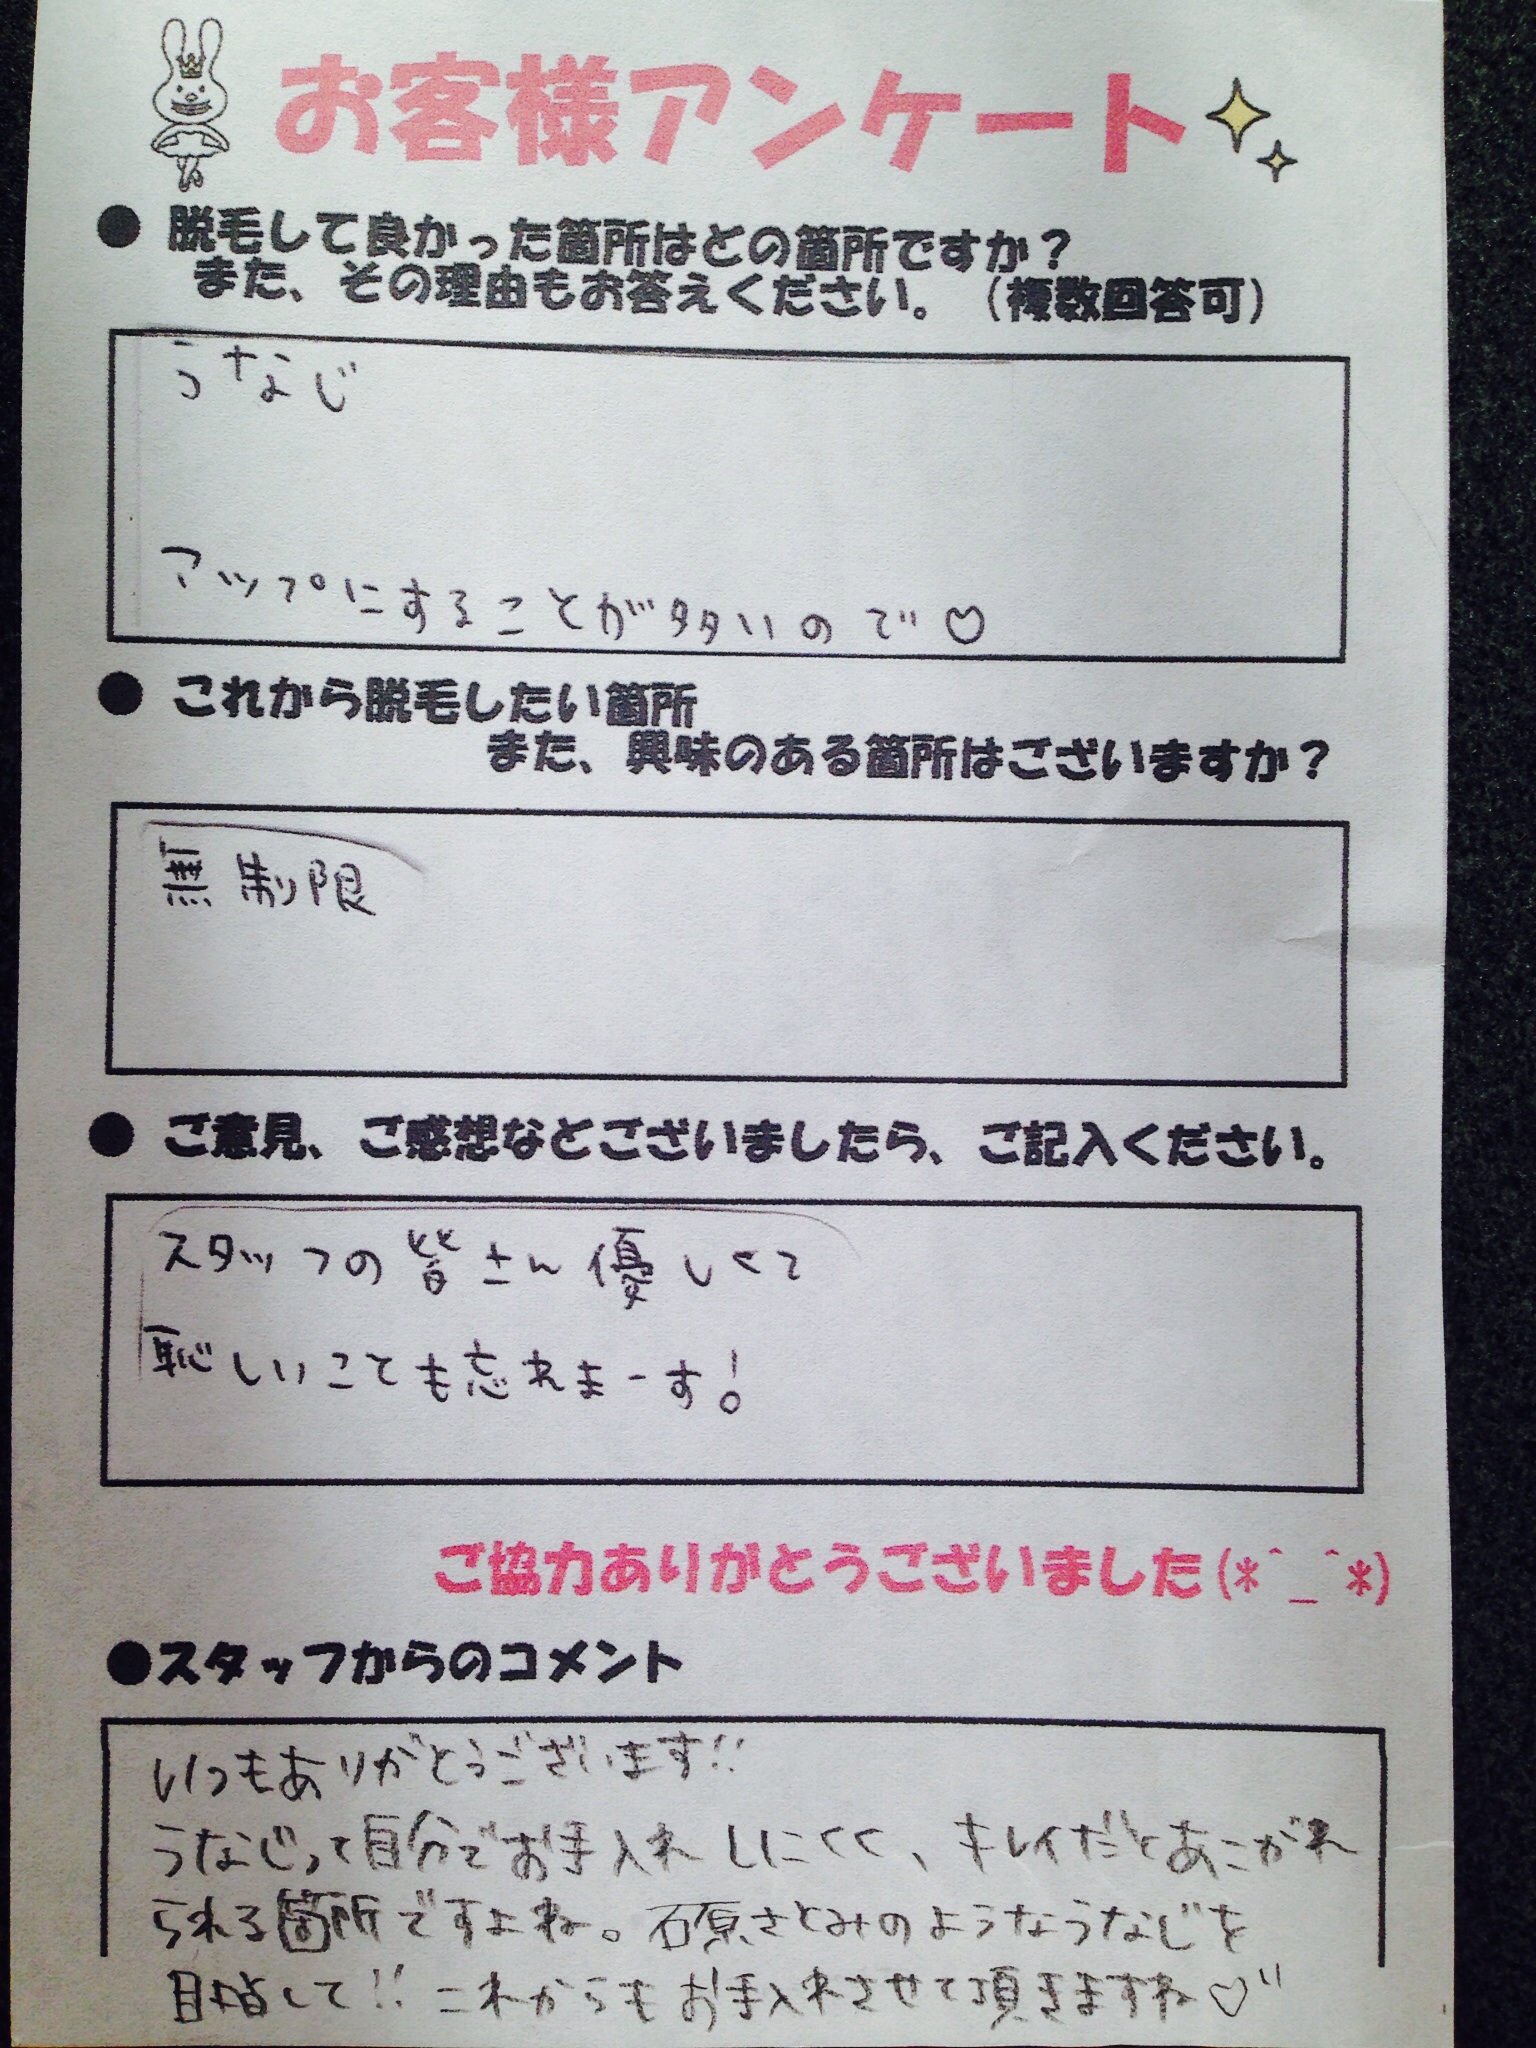 お客様アンケート
● 脱毛して良かった箇所はどの箇所ですか？
また、その理由もお答えください。（複数回答可）
うなじ
アップにすることが多いので♡
● これから脱毛したい箇所
また、興味のある箇所はございますか？
無制限
● ご意見、ご感想などございましたら、ご記入ください。
スタッフの皆さん優しくて
恥しいことも忘れまーす！
ご協力ありがとうございました(*＾_＾*)
●スタッフからのコメント
いつもありがとうございます!!
うなじって自分でお手入れしにくく、キレイだとあこがれ
られる箇所ですよね。石原さとみのようなうなじを
目指して!! これからもお手入れさせて頂きますね♡"